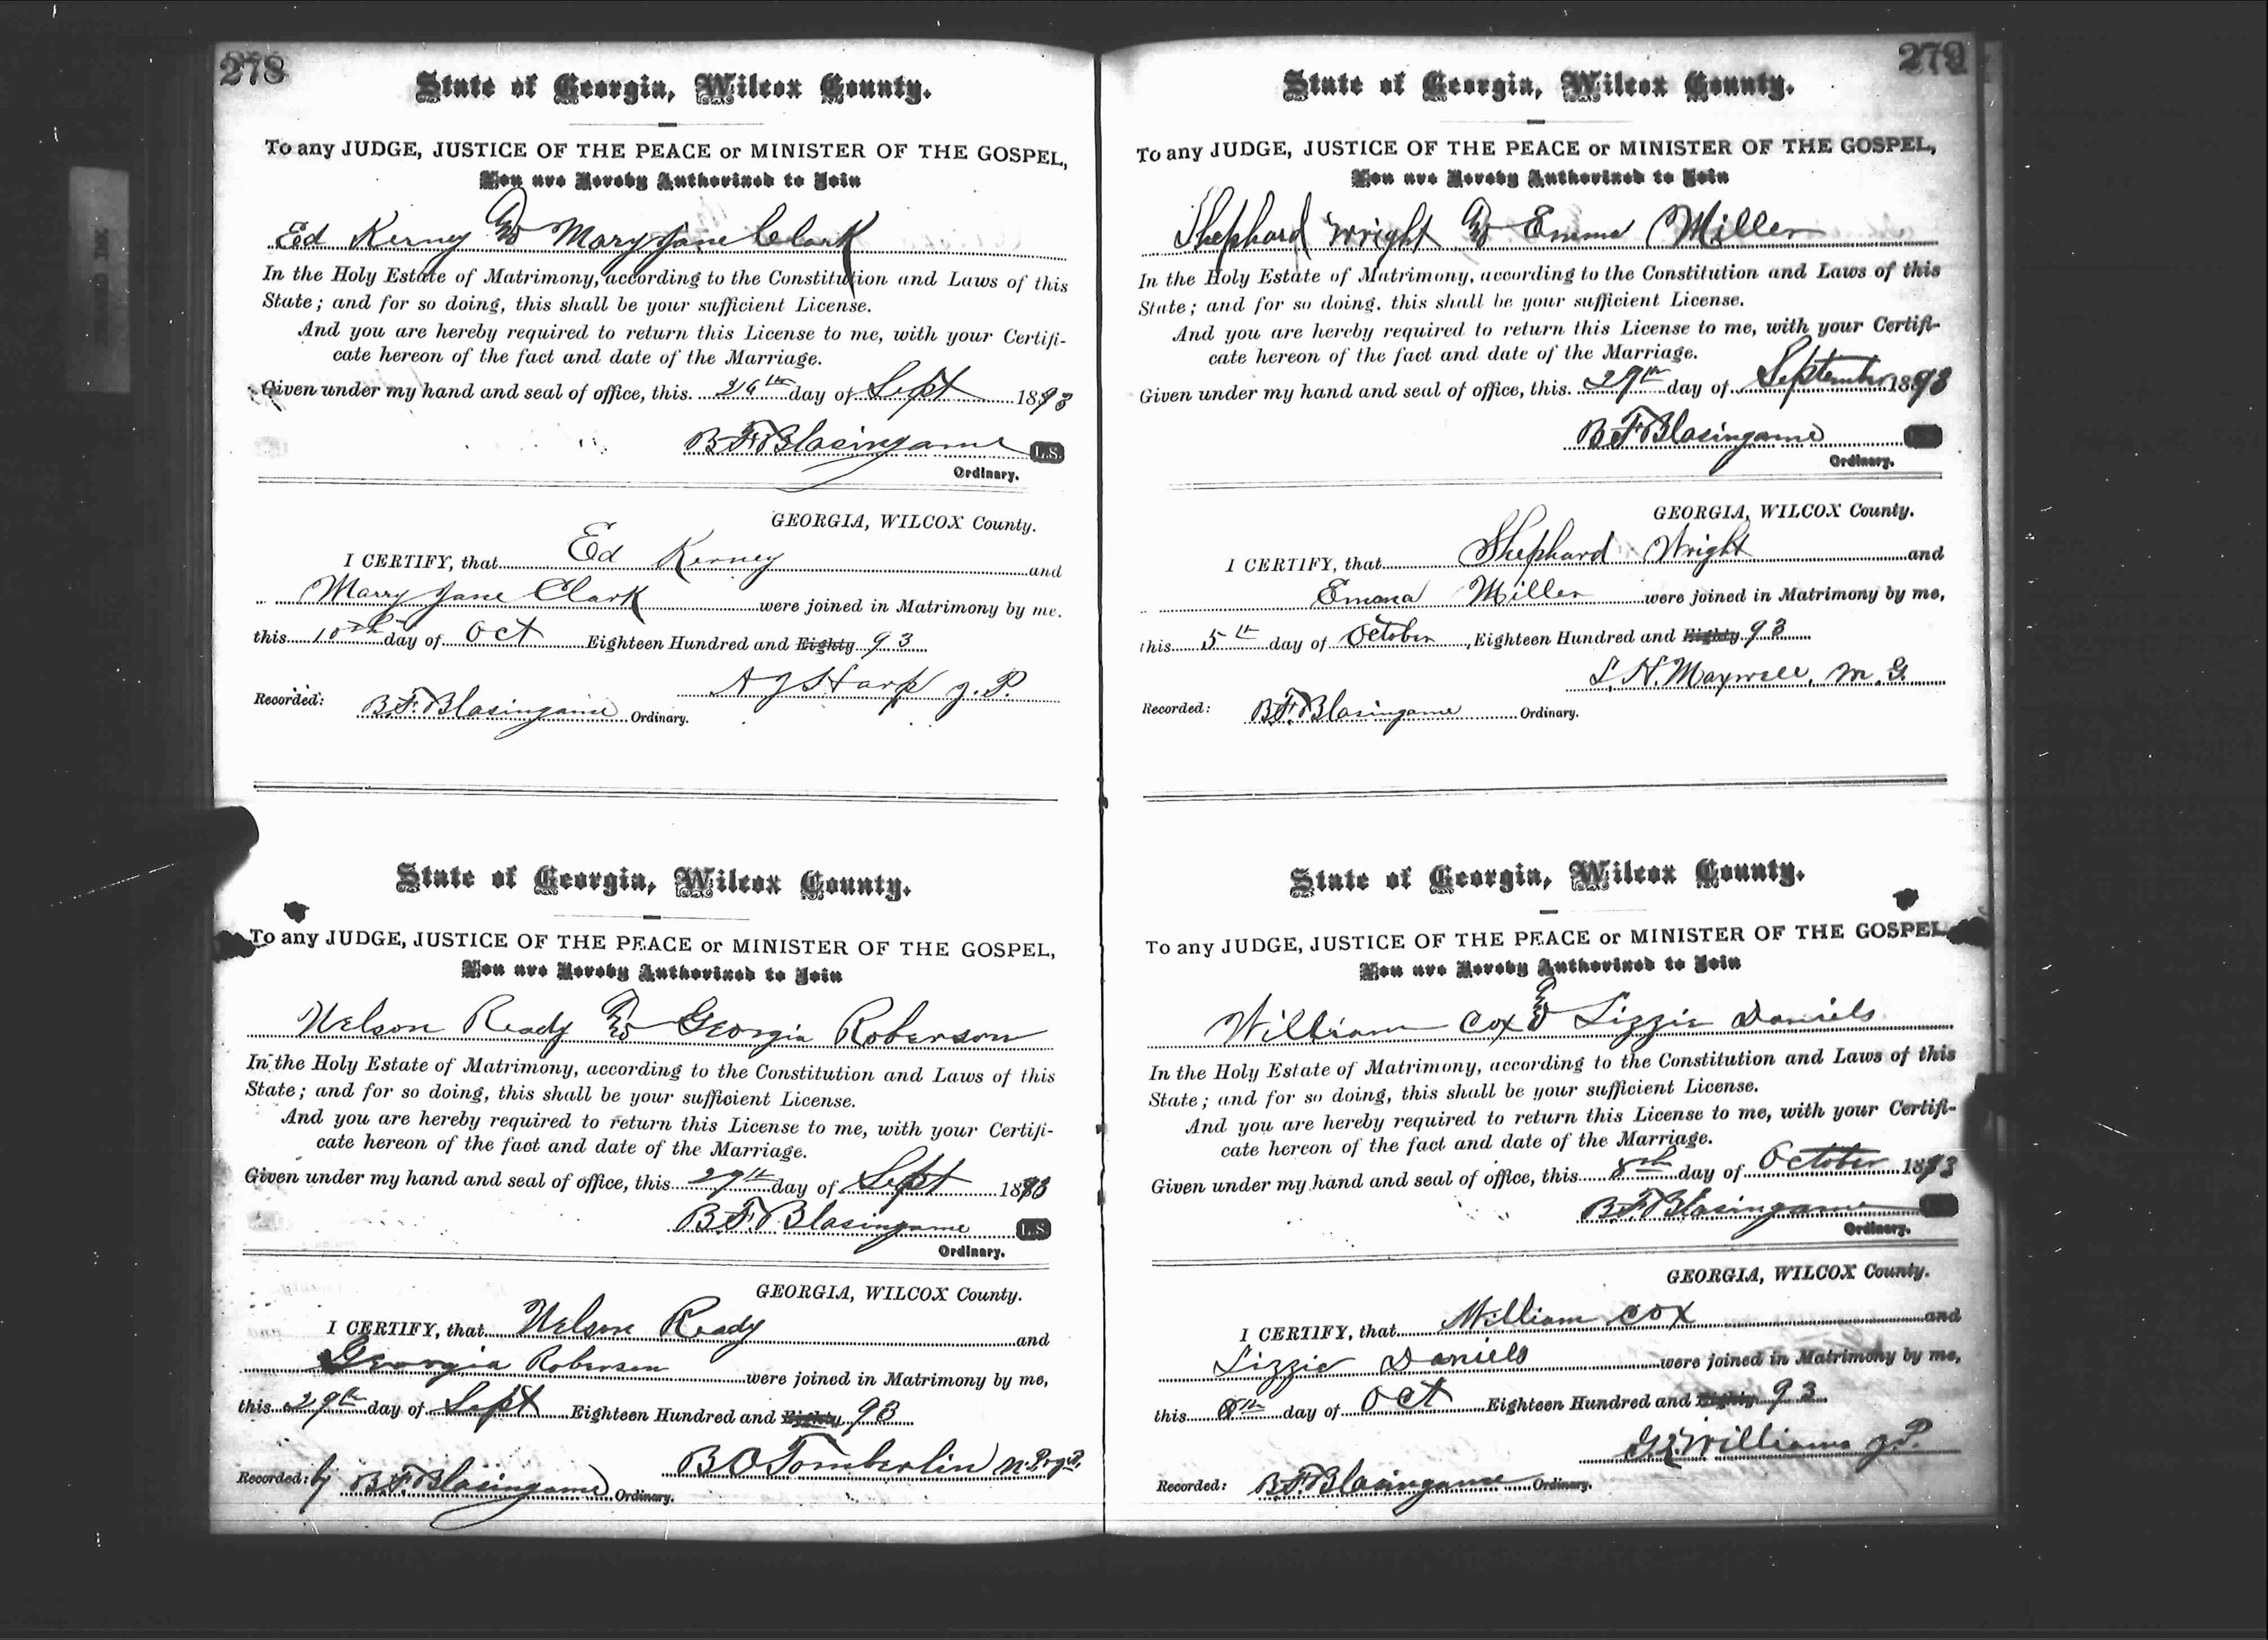 278
State of Georgia, Wilcox County.
To any JUDGE, JUSTICE OF THE PEACE or MINISTER OF THE GOSPEL,
You are Hereby Authorized to Join
Ed Kerney & Mary Jane Clark
In the Holy Estate of Matrimony, according to the Constitution and Laws of this
State; and for so doing, this shall be your sufficient License.
And you are hereby required to return this License to me, with your Certifi-
cate hereon of the fact and date of the Marriage.
Given under my hand and seal of office, this day of Sept 1893
B F Blasingame L.S.
Ordinary.
GEORGIA, WILCOX County.
I CERTIFY, that Ed Kerney and
Marry Jane Clark were joined in Matrimony by me.
this 10th day of Oct Eighteen Hundred and Eighty 93
A J Harp J. P.
Recorded: B. F. Blasingame Ordinary.
State of Georgia, Wilcox County.
To any JUDGE, JUSTICE OF THE PEACE or MINISTER OF THE GOSPEL,
You are Hereby Authorized to Join
Nelson Ready & Georgia Roberson
In the Holy Estate of Matrimony, according to the Constitution and Laws of this
State; and for so doing, this shall be your sufficient License.
And you are hereby required to return this License to me, with your Certifi-
cate hereon of the fact and date of the Marriage.
Given under my hand and seal of office, this 29th day of Sept 1893
B. F. Blasingame L.S
Ordinary.
GEORGIA, WILCOX County.
I CERTIFY, that Nelson Ready and
Georgia Roberson were joined in Matrimony by me,
this 29th day of Sept Eighteen Hundred and Eighty 93
B O Tomberlin
Recorded: by B. F. Blasingame Ordinary.
279
State of Georgia, Wilcox County.
To any JUDGE, JUSTICE OF THE PEACE or MINISTER OF THE GOSPEL,
You are Hereby Authorized to Join
Shephard Wright & Emma Miller
In the Holy Estate of Matrimony, according to the Constitution and Laws of this
State; and for so doing, this shall be your sufficient License.
And you are hereby required to return this License to me, with your Certifi-
cate hereon of the fact and date of the Marriage.
Given under my hand and seal of office, this 29th day of September 1893
B F Blasingame
Ordinary.
GEORGIA, WILCOX County.
I CERTIFY, that Shephard Wright and
Emma Miller were joined in Matrimony by me,
this 5th day of October, Eighteen Hundred and Eighty 93
S. H. Maxwell, M. G.
Recorded: B. F. Blasingame Ordinary.
State of Georgia, Wilcox County.
To any JUDGE, JUSTICE OF THE PEACE or MINISTER OF THE GOSPEL,
You are Hereby Authorized to Join
William Cox & Lizzie Daniels
In the Holy Estate of Matrimony, according to the Constitution and Laws of this
State; and for so doing, this shall be your sufficient License.
And you are hereby required to return this License to me, with your Certifi-
cate hereon of the fact and date of the Marriage.
Given under my hand and seal of office, this 8th day of October 1893
B. F. Blasingame
Ordinary.
GEORGIA, WILCOX County.
I CERTIFY, that William Cox and
Lizzie Daniels were joined in Matrimony by me,
this 8th day of Oct Eighteen Hundred and Eighty 93
Williams J. P.
Recorded: B. F. Blasingame Ordinary.